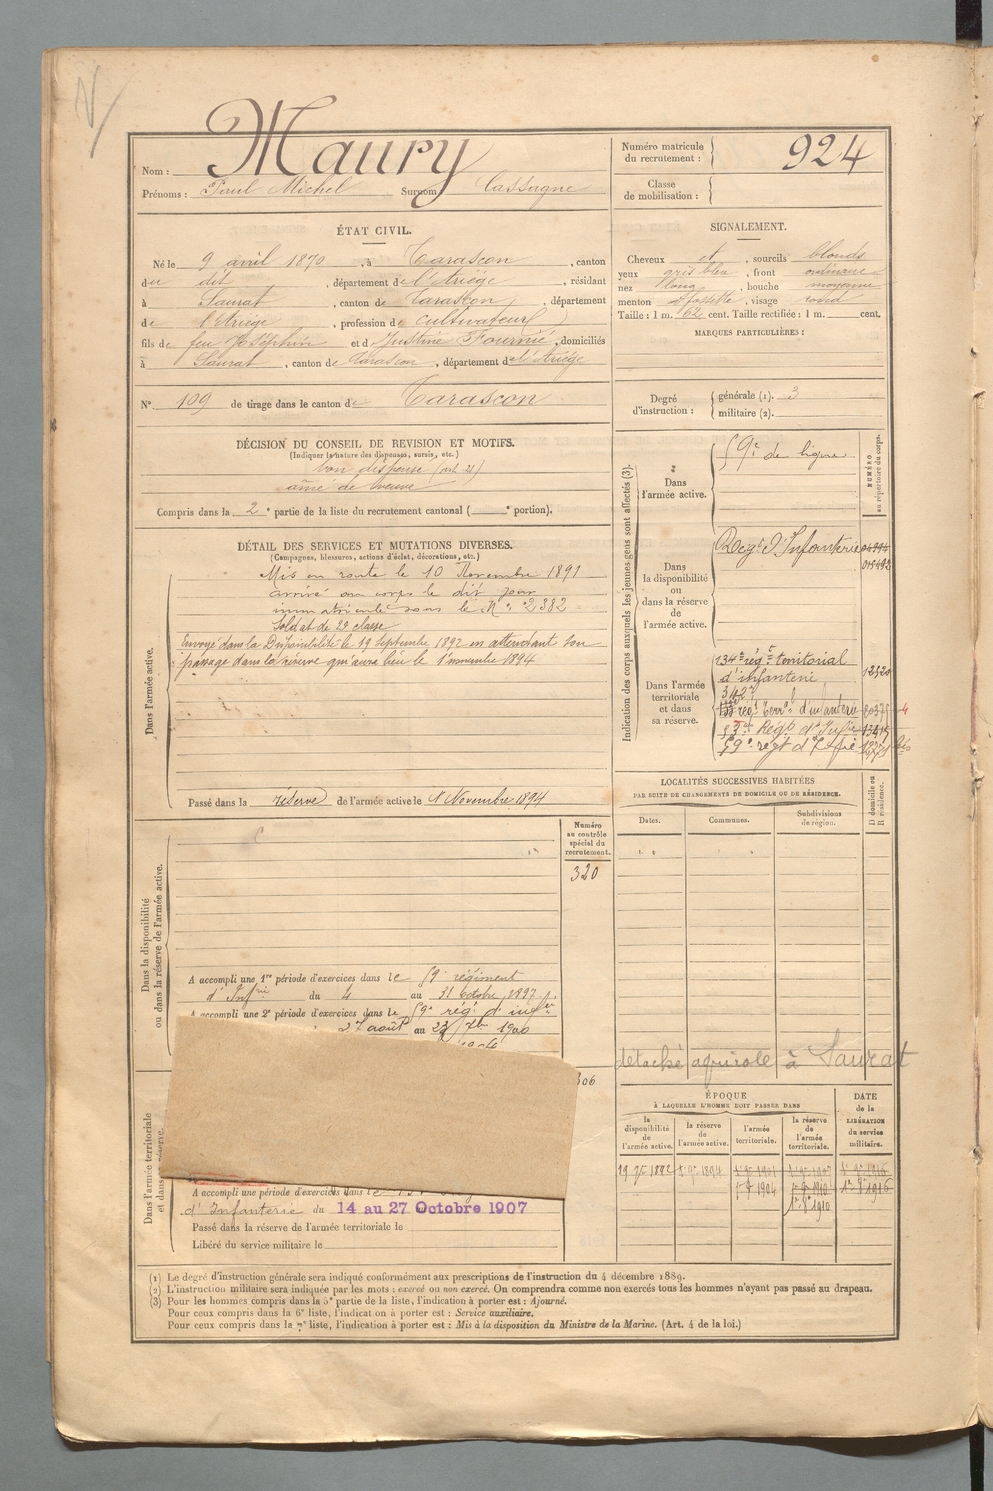 Maury
Nom :
Prénoms : Paul Michel Surnom Cassagne
Numéro matricule du recrutement : 924
Classe de mobilisation :
ÉTAT CIVIL.
Né le 9 avril 1870, à Tarascon, canton
du dit, département de l'Ariège, résidant
à Saurat, canton de Tarascon, département
de l'Ariège, profession de cultivateur
fils de feu Joséphin et de Justine Fournié, domiciliés
à Saurat, canton de Tarascon, département de l'Ariège
N° 109 de tirage dans le canton de Tarascon
SIGNALEMENT.
Cheveux et, sourcils blonds
yeux gris bleu, front ordinaire
nez long, bouche moyenne
menton à fossette, visage rond
Taille : 1 m. 62 cent. Taille rectifiée : 1 m. cent.
MARQUES PARTICULIÈRES :
Degré d'instruction : générale (1). 3
militaire (2).
DÉCISION DU CONSEIL DE REVISION ET MOTIFS.
(Indiquer la nature des dispenses, sursis, etc.)
bon dispensé (art. 21)
aîné de veuve
Compris dans la 2e partie de la liste du recrutement cantonal ( e portion).
DÉTAIL DES SERVICES ET MUTATIONS DIVERSES.
(Campagnes, blessures, actions d'éclat, décorations, etc.)
Dans l'armée active.
Mis en route le 10 Novembre 1891
arrivé au corps le dit jour
immatriculé sous le N° 2382
Soldat de 2e classe
Envoyé dans la Disponibilité le 19 Septembre 1892 en attendant son
passage dans la réserve qui aura lieu le 1 novembre 1894
Passé dans la réserve de l'armée active le 1 Novembre 1894
Indication des corps auxquels les jeunes gens sont affectés (3).
NUMÉRO au répertoire du corps.
Dans l'armée active.
59e de ligne
Dans la disponibilité ou dans la réserve de l'armée active.
Regt d'Infanterie
Dans l'armée territoriale et dans sa réserve.
134e régt territorial
d'infanterie
12520
régt terral d'infanterie
Régt d'Infie
59e régt d'Infie
LOCALITÉS SUCCESSIVES HABITÉES
PAR SUITE DE CHANGEMENTS DE DOMICILE OU DE RÉSIDENCE.
D domicile ou R résidence.
Dates.
Communes.
Subdivisions de région.
détaché agricole à Saurat
Dans la disponibilité ou dans la réserve de l'armée active.
Numéro au contrôle spécial du recrutement.
320
A accompli une 1re période d'exercices dans le 59e régiment
d'Infrie du 4 au 31 octobre 1897
A accompli une 2e période d'exercices dans le 59e rég. d'infie
27 août au 23 7bre 1900
306
Dans l'armée territoriale
A accompli une période d'exercices dans le
d'Infanterie du 14 au 27 Octobre 1907
Passé dans la réserve de l'armée territoriale le
Libéré du service militaire le
ÉPOQUE
À LAQUELLE L'HOMME DOIT PASSER DANS
la disponibilité de l'armée active.
la réserve de l'armée active.
l'armée territoriale.
la réserve de l'armée territoriale.
DATE de la LIBÉRATION du service militaire.
19 7bre 1892
1er 9bre 1894
1er 9bre 1904
(1) Le degré d'instruction générale sera indiqué conformément aux prescriptions de l'instruction du 4 décembre 1889.
(2) L'instruction militaire sera indiquée par les mots : exercé ou non exercé. On comprendra comme non exercés tous les hommes n'ayant pas passé au drapeau.
(3) Pour les hommes compris dans la 5e partie de la liste, l'indication à porter est : Ajourné.
Pour ceux compris dans la 6e liste, l'indication à porter est : Service auxiliaire.
Pour ceux compris dans la 7e liste, l'indication à porter est : Mis à la disposition du Ministre de la Marine. (Art. 4 de la loi.)